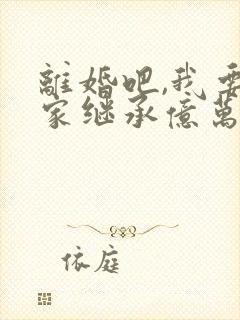 離婚吧,我要
家继承億萬
依庭